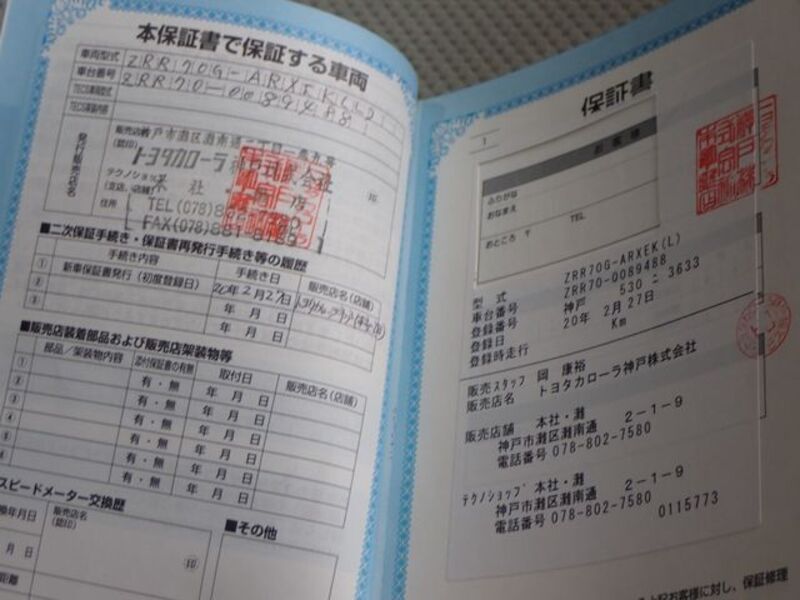 本保証書で保証する車両
車両型式 ZRR70G-ARXEK(L)
車台番号 ZRR70-0089488
TECS車両型式
TECS架装内容
発行販売店名
販売店
(認印)
トヨタカローラ神戸株式会社
テクノショップ
(支店、店舗)
本社
住所
TEL(078)
FAX(078)
印
■二次保証手続き・保証書再発行手続き等の履歴
手続き内容 手続き日 販売店名(店舗)
① 新車保証書発行(初度登録日) 20年2月27日
② 年 月 日
③ 年 月 日
■販売店装着部品および販売店架装物等
部品/架装物内容 添付保証書の有無 取付日 販売店名(店舗)
① 有・無 年 月 日
② 有・無 年 月 日
③ 有・無 年 月 日
④ 有・無 年 月 日
⑤ 有・無 年 月 日
スピードメーター交換歴
換年月日 販売店名
(認印)
月 日
印
距離
■その他
保証書
お客様
ふりがな
おなまえ
おところ 〒 TEL
型式 ZRR70G-ARXEK(L)
車台番号 ZRR70-0089488
登録番号 神戸 530 - 3633
登録日 20年 2月27日
登録時走行 Km
販売スタッフ 岡 康裕
販売店名 トヨタカローラ神戸株式会社
販売店舗 本社・灘
神戸市灘区灘南通 2-1-9
電話番号 078-802-7580
テクノショップ 本社・灘
神戸市灘区灘南通 2-1-9
電話番号 078-802-7580
0115773
上記お客様に対し、保証修理